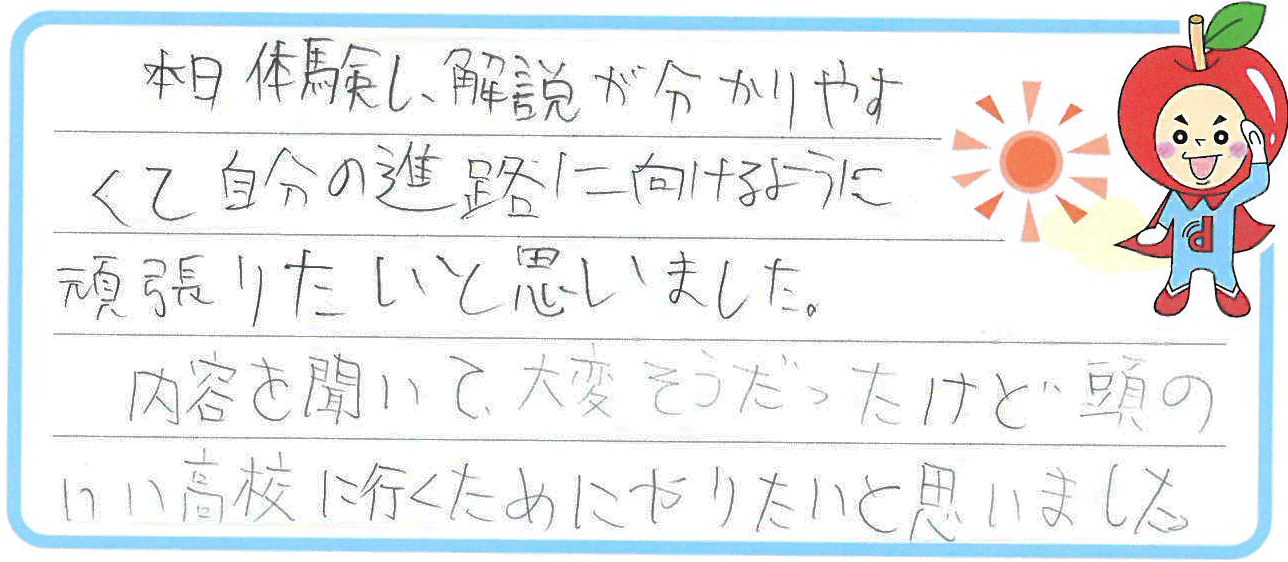 本日体験し、解説が分かりやす
くて自分の進路に向けるように
頑張りたいと思いました。
内容を聞いて、大変そうだったけど頭の
いい高校に行くためにやりたいと思いました。